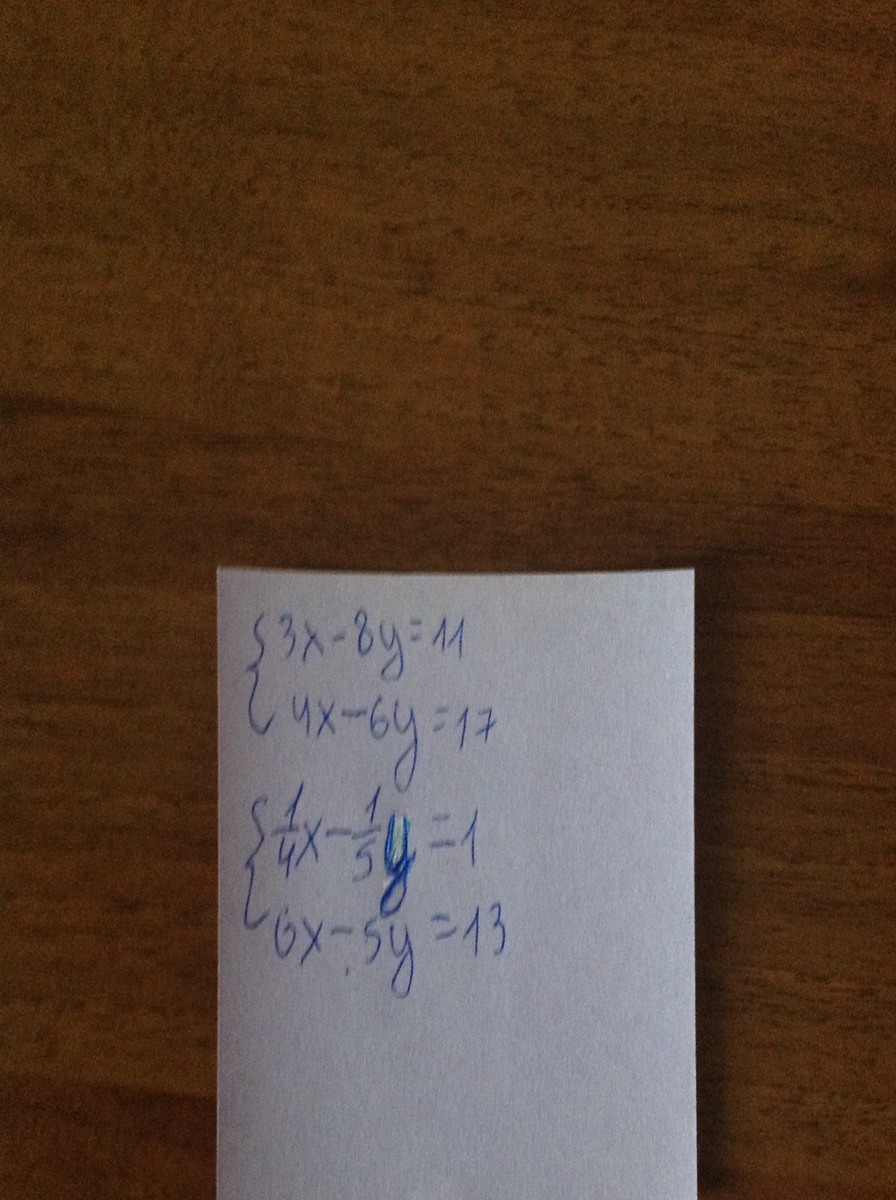 {3x-8y=11
4x-6y=17
{1/4x-1/5y=1
6x-5y=13